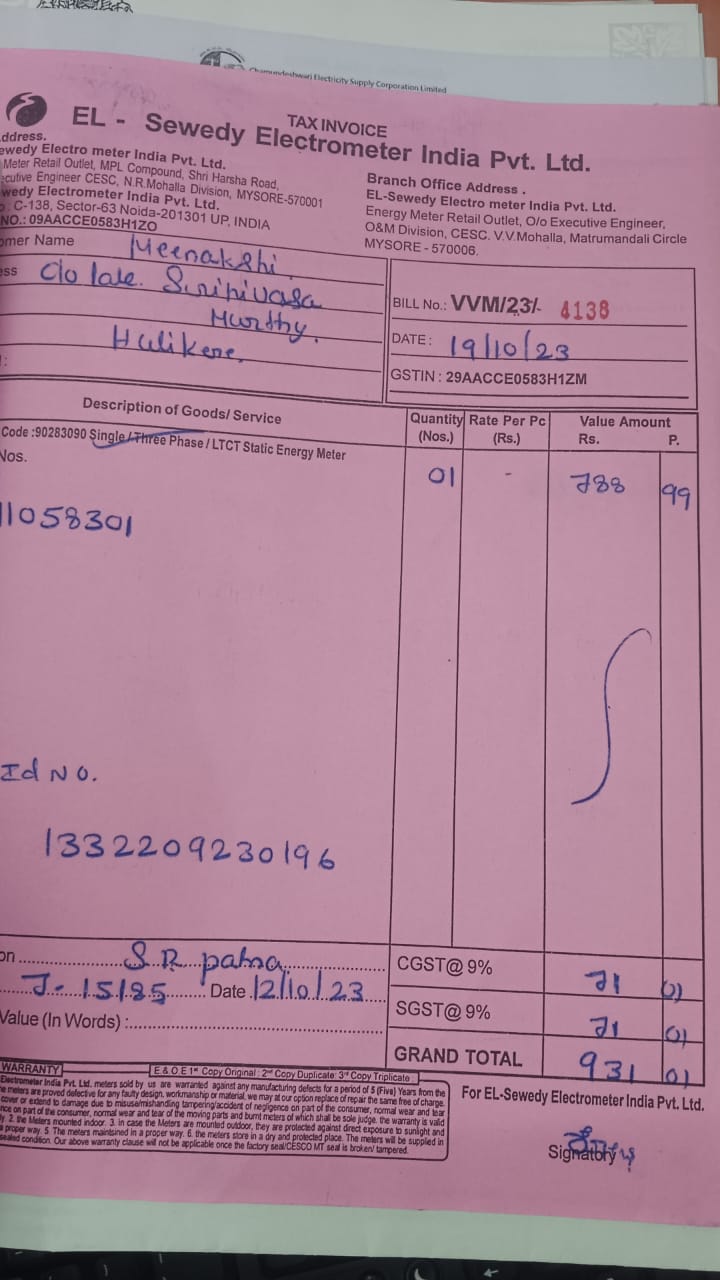 Chamundeshwari Electricity Supply Corporation Limited
TAX INVOICE
EL - Sewedy Electrometer India Pvt. Ltd.
ddress.
ewedy Electro meter India Pvt. Ltd.
Meter Retail Outlet, MPL Compound, Shri Harsha Road,
cutive Engineer CESC, N.R.Mohalla Division, MYSORE-570001
wedy Electrometer India Pvt. Ltd.
C-138, Sector-63 Noida-201301 UP, INDIA
NO.: 09AACCE0583H1ZO
Branch Office Address .
EL-Sewedy Electro meter India Pvt. Ltd.
Energy Meter Retail Outlet, O/o Executive Engineer,
O&M Division, CESC. V.V.Mohalla, Matrumandali Circle
MYSORE - 570006.
omer Name Meenakshi
ess C/o late. Srinivasa
Murthy.
Hulikere.
BILL No.: VVM/23/- 4138
DATE : 19/10/23
GSTIN : 29AACCE0583H1ZM
Description of Goods/ Service Quantity (Nos.) Rate Per Pc (Rs.) Value Amount Rs. P.
Code :90283090 Single / Three Phase / LTCT Static Energy Meter
Nos. 01 - 788 99
11058301
Id No.
1332209230196
on S R patna
J- 15185 Date 12/10/23
Value (In Words) :
CGST@ 9% 71 01
SGST@ 9% 71 01
GRAND TOTAL 931 01
WARRANTY E & O E 1st Copy Original : 2nd Copy Duplicate: 3rd Copy Triplicate
Electrometer India Pvt. Ltd. meters sold by us are warranted against any manufacturing defects for a period of 5 (Five) Years from the
e meters are proved defective for any faulty design, workmanship or material, we may at our option replace of repair the same free of charge.
cover or extend to damage due to misuse/mishandling tampering/accident of negligence on part of the consumer, normal wear and tear
nce on part of the consumer, normal wear and tear of the moving parts and burnt meters of which shall be sole judge. the warranty is valid
y. 2. the Meters mounted indoor. 3. in case the Meters are mounted outdoor, they are protected against direct exposure to sunlight and
a proper way. 5. The meters maintained in a proper way. 6. the meters store in a dry and protected place. The meters will be supplied in
sealed condition. Our above warranty clause will not be applicable once the factory seal/CESCO MT seal is broken/ tampered.
For EL-Sewedy Electrometer India Pvt. Ltd.
Signatory